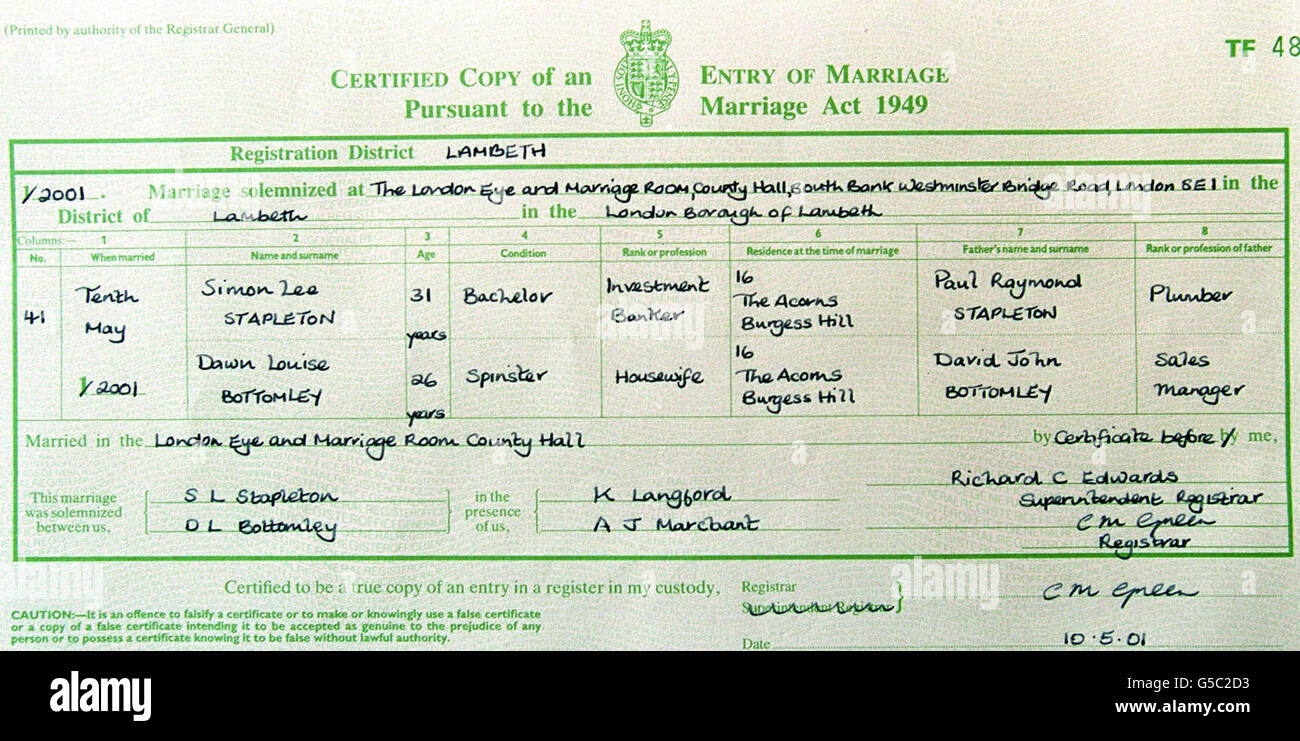 (Printed by authority of the Registrar General)
TF 48
CERTIFIED COPY OF AN ENTRY OF MARRIAGE
Pursuant to the Marriage Act 1949
Registration District LAMBETH
1/2001. Marriage solemnized at The London Eye and Marriage Room, County Hall, South Bank Westminster Bridge Road, London SE1 in the
District of Lambeth in the London Borough of Lambeth
Columns:— 1 2 3 4 5 6 7 8
No. When married Name and surname Age Condition Rank or profession Residence at the time of marriage Father's name and surname Rank or profession of father
41 Tenth May 1/2001
Simon Lee STAPLETON 31 years Bachelor Investment Banker 16 The Acorns Burgess Hill Paul Raymond STAPLETON Plumber
Dawn Louise BOTTOMLEY 26 years Spinster Housewife 16 The Acorns Burgess Hill David John BOTTOMLEY Sales Manager
Married in the London Eye and Marriage Room County Hall by Certificate before by me,
This marriage was solemnized between us, S L Stapleton D L Bottomley in the presence of us, K Langford A J Marchant
Richard C Edwards
Superintendent Registrar
C M Green
Registrar
Certified to be a true copy of an entry in a register in my custody,
Registrar
Superintendent Registrar
C M Green
CAUTION:—It is an offence to falsify a certificate or to make or knowingly use a false certificate
or a copy of a false certificate intending it to be accepted as genuine to the prejudice of any
person or to possess a certificate knowing it to be false without lawful authority.
Date 10.5.01
alamy
Image ID: G5C2D3
www.alamy.com